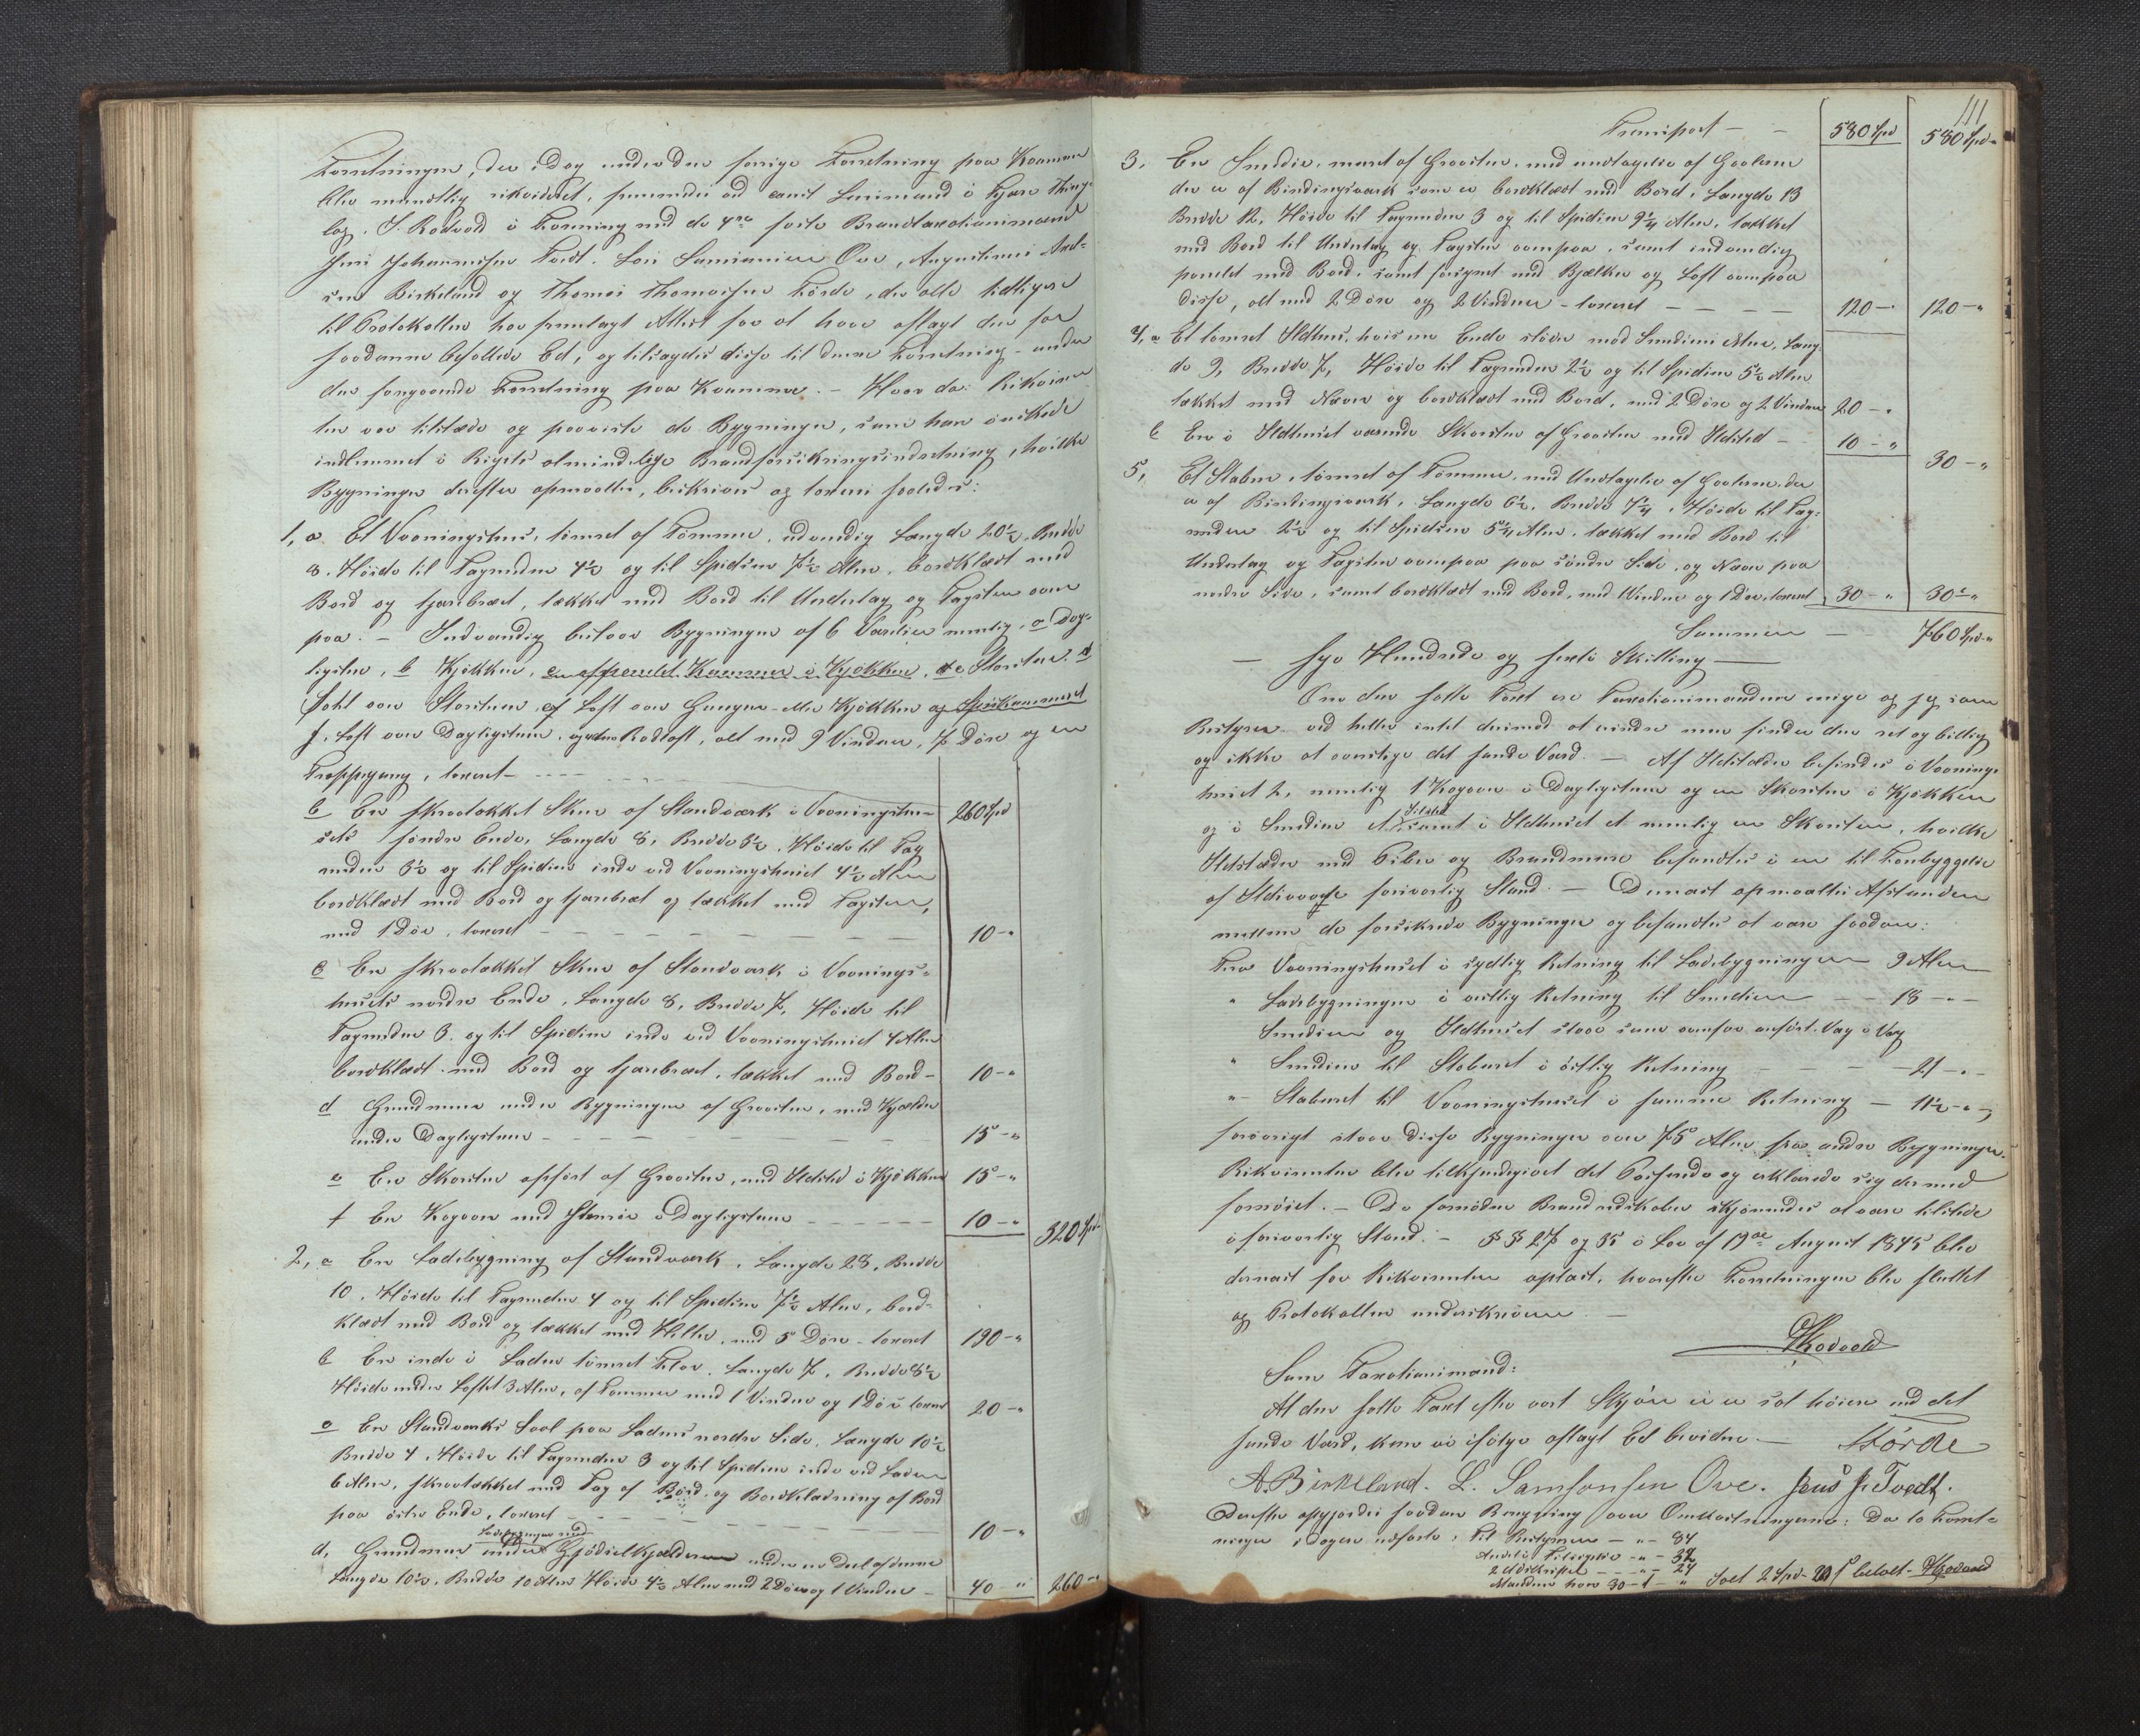 Forretningen, der i Dag under den forrige Forretning paa Kvamme
blev mundtlig rekvireret, fremmedes ad constit Lensmand i Kjærs Thing-
lag, S. Rodvold i Forening med de 4re faste Brandtaxationsmænd
Jens Johannesen Tvedt. Lars Samsonsen Ove, Augustinus And-
sen Birkeland og Thomas Thomassen Førde, der alle tidligere
til Protokollen har fremlagt Attest for at have aflagt den for
saadanne befalede Ed, og tilsagdes disse til denne Forretning under
den foregaaende Forretning paa Kvamme. – Hvor da Rekviren
ten var tilstæde og paaviste de Bygninger, som han ønskede
indlemmet i Rigets almindelige Brandforsikringsindretning, hvilke
Bygninger derefter opmaaltes, beskreves og taxeres saaledes:
1, a Et Vaaningshus, tømret af Tømmer, udvendig Længde 20½, Bredde
8, Høide til Tagrenden 4½ og til Spidsen 7½ Alen, bordklædt med
Bord og tjærebræet, tækket med Bord til Undertag og Tagsten oven
paa. – Indvendig bestaar Bygningen af 6 Værelser nemlig, a Dag-
ligstue, b Kjøkken, c afpanelet Kammer i Kjøkken, d Storstue, d
Sahl over Storstuen, e Loft over Gangen eller Kjøkken og Spiskammeret
f, Loft over Dagligstuen, og Rodloft, alt med 9 Vinduer, 7 Døre og en
Trappegang, taxeret – 260 Spd
b En skraatækket Skur af Standværk i Vaaningshu-
sets søndre Ende, Længde 8, Bredde 3½, Høide til Tag
renden 3½ og til Spidsen inde ved Vaaningshuset 4½ Alen
bordklædt med Bord og tjærebræet og tækket med Tagsten,
med 1 Dør, taxeret – 10 -"
c En skraatækket Skur af Standværk i Vaanings-
husets nordre Ende, Længde 8, Bredde 7, Høide til
Tagrenden 3, og til Spidsen inde ved Vaaningshuset 4 Alen
bordklædt med Bord og tjærebræet, tækket med Bord – 10 -"
d Grundmuur under Bygningen af Graasten, med Kjælder
under Dagligstuen – 15 -"
e En Skorsten opført af Graasten, med Ildsted i Kjøkken 15 -"
f En Kogoven med i Dagligstuen – 10 -" 320 Spd
2, a En Ladebygning af Standværk, Længde 28, Bredde
10, Høide til Tagrenden 4 og til Spidsen 7½ Alen, bord-
klædt med Bord og tækket med Heller, med 5 Døre – taxeret 190 -"
b En inde i Laden tømret Flor, Længde 7, Bredde 8½
Høide under Loftet 3 Alen, af Tømmer med 1 Vindue og 1 Dør taxeret 20 -"
c En Standværks Sval paa Ladens nordre Side, Længde 10½
Bredde 4, Høide til Tagrenden 3 og til Spidsen inde ved Laden
6 Alen, skraatækket med Tag af Bord, og Bordklædning af Bord
paa østre Ende, taxeret – 10 -"
d, Grundmuur under Ladebygningen med Gjødselkjælder under en Deel af denne
Længde 10½, Bredde 10 Alen Høide 4½ Alen med 2 Døre og 1 Vindue – 40 -" 260 -"
111
Transport – 580 Spd 580 Spd "
3, En Smedie, muret af Graasten, med undtagelse af Gavlene
der er af Bindingsværk som er bordklædt med Bord, Længde 13
Bredde 12, Høide til Tagrenden 3 og til Spidsen 9¼ Alen, tækket
med Bord til Undertag og Tagsten ovenpaa, samt indvendig
panelet med Bord, samt forsynet med Bjælker og Loft ovenpaa
disse, alt med 2 Døre og 2 Vinduer – taxeret – 120 -" 120 -"
4, a Et tømret Ildhuus, hvis ene Ende støder mod Smediens Muur, Læng-
de 9, Bredde 7, Høide til Tagrenden 2½ og til Spidsen 5½ Alen
tækket med Næver og bordklædt med Bord, med 2 Døre og 2 Vinduer 20 -"
b En i Ildhuset værende Skorsten af Graasten med Ildsted – 10 -" 30 -"
5, Et Stabur, tømret af Tømmer, med Undtagelse af Gavlene, der
er af Bindingsværk, Længde 6½, Bredde 7¼, Høide til Tag-
renden 2½ og til Spidsen 5¼ Alen, tækket med Bord til
Undertag og Tagsten ovenpaa paa søndre Side, og Næver paa
nordre Side, samt bordklædt med Bord, med Vindue og 1 Dør, taxeret 30 -" 30 -"
Summen – 760 Spd "
– Syv Hundrede og sexti Skilling –
Om den satte Taxt er Taxationsmændene enige og jeg som
Bestyrer ved heller intet derimod at erindre men finder den ret og billig
og ikke at overstige det sande Værd. – Af Ildsteder befindes i Vaanings-
huset 2, nemlig 1 Kogoven i Dagligstuen og en Skorsten i Kjøkken
og i Smedien et Ildsted samt i Ildhuset et nemlig en Skorsten, hvilke
Ildstæder med Piber og Brandmure befandtes i en til Forebyggelse
af Ildsvaade forsvarlig Stand. – Dernæst opmaaltes Afstanden
mellem de forsikrede Bygninger og befandtes at være saadan:
Fra Vaaningshuset i sydlig Retning til Ladebygningen – 9 Alen
" Ladebygningen i vestlig Retning til Smedien – 18 –"–
Smedien og Ildhuset staar som ovenfor anført Væg i Væg
" Smedien til Staburet i østlig Retning – 21 –"–
" Staburet til Vaaningshuset i samme Retning – 11½ –"–,
forøvrigt staar disse Bygninger over 75 Alen fra andre Bygninger.
Rekvirenten blev tilkjendegivet det Passerede og erklærede sig dermed
fornøiet. – De fornødne Brandredskaber skjønnedes at være tilstede
i forsvarlig Stand. – §§ 27 og 35 i Lov af 19de August 1845 blev
dernæst for Rekvirenten oplæst, hvorefter Forretningen blev sluttet
og Protokollen underskreven. –
SRodvold
Som Taxationsmænd:
At den satte Taxt efter vort Skjøn ei er sat høiere end det
sande Værd, kan vi ifølge aflagt Ed bevidne. – TFörde
A. Birkeland. L. Samsonsen Ove. Jens J. Tvedt.
Derefter opgjordes saadan Beregning over Omkostningerne: De to Forret-
ninger i Dagen udførte, til Bestyreren – " – 84
– " – 32
2 Udskrifter – " – 24
Mændene hver 30 – 1 – " – Ialt 2 Spd betalt – SRodvold